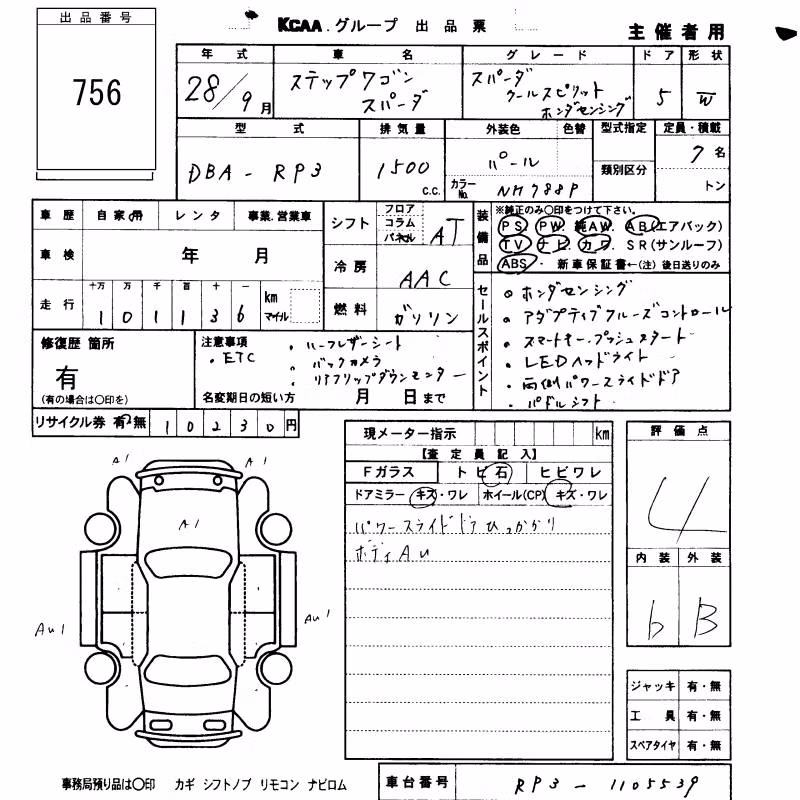 出品番号
756
KCAA.グループ 出品票
主催者用
年式 車名 グレード ドア 形状
28/9月
ステップワゴン
スパーダ
スパーダ
クールスピリット
ホンダセンシング
5 W
型式 排気量 外装色 色替 型式指定 定員・積載
DBA-RP3
1500 c.c.
パール
カラーNo. NH788P
類別区分
7名
トン
車歴 自家用 レンタ 事業.営業車
シフト フロア コラム パネル AT
装備品
※純正のみ○印をつけて下さい。
PS. PW. 純AW. AB(エアバック)
TV ナビ. カワ. SR(サンルーフ)
ABS・ 新車保証書←(注)後日送りのみ
車検 年 月
冷房 AAC
走行 十万 万 千 百 十 一 km マイル
101136
燃料 ガソリン
セールスポイント
・ホンダセンシング
・アダプティブクルーズコントロール
・スマートキー.プッシュスタート
・LEDヘッドライト
・両側パワースライドドア
・パドルシフト
修復歴 箇所
有
(有の場合は○印を)
注意事項
・ETC
・ハーフレザーシート
・バックカメラ
・リアフリップダウンモニター
名変期日の短い方 月 日まで
リサイクル券 有・無 10230円
現メーター指示 km
【査定員記入】
Fガラス トビ石 ヒビワレ
ドアミラー キズ・ワレ ホイール(CP) キズ・ワレ
パワースライドドアひっかかり
ボディAU
評価点
4
内装 外装
b B
A1 A1
A1
AU1 AU1
ジャッキ 有・無
工具 有・無
スペアタイヤ 有・無
事務局預り品は○印 カギ シフトノブ リモコン ナビロム
車台番号 RP3-1105539